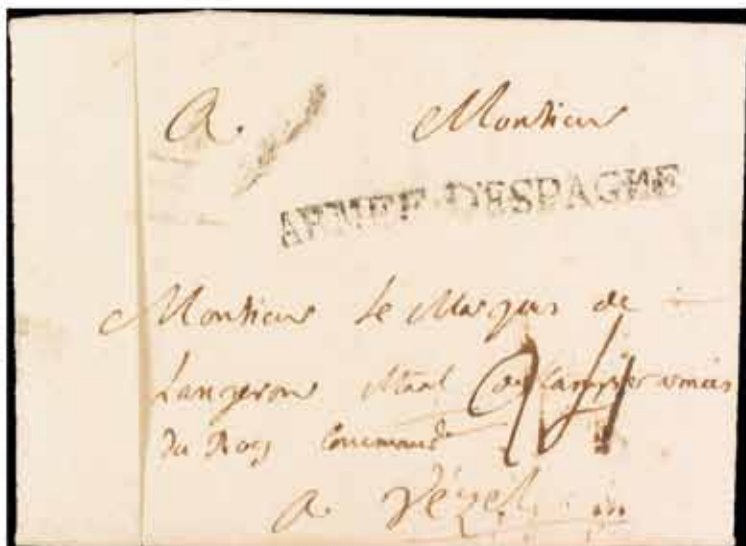 A Monsieur
ARMEE D'ESPAGNE
Monsieur Le Marquis de
Langeron de Camp et armées
du Roy Command
a